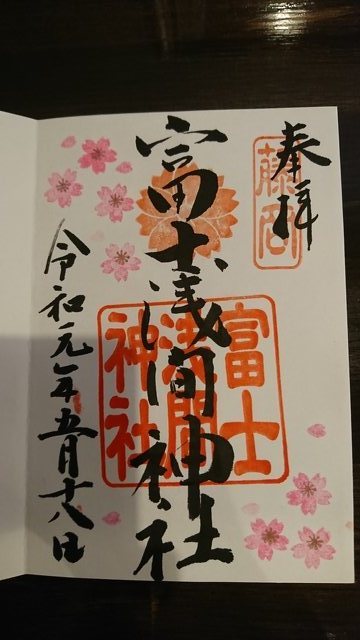 奉拝
藤岡
富士浅間神社
富士
浅間
神社
令和元年五月十八日